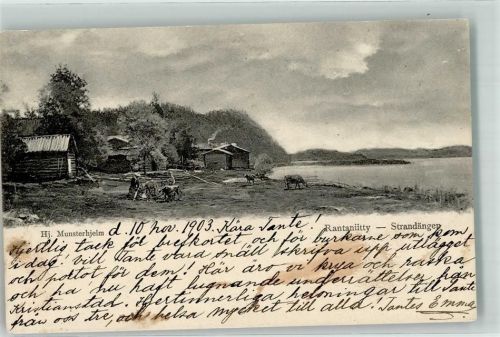 Hj. Munsterhjelm
Rantaniitty — Strandängen
d. 10 nov. 1903. Kära Tante!
Hjertlig tack för brefkortet och för burkarne som kom
i dag! vill Tante vara snäll skrifva upp utlägget
och portot för dem! Här äro vi krya och raska
och ha nu haft lugnande underrättelser från
Kristianstad. Hjertinnerliga helsningar till Tante
från oss tre, och helsa mycket till alla! Tantes Emma